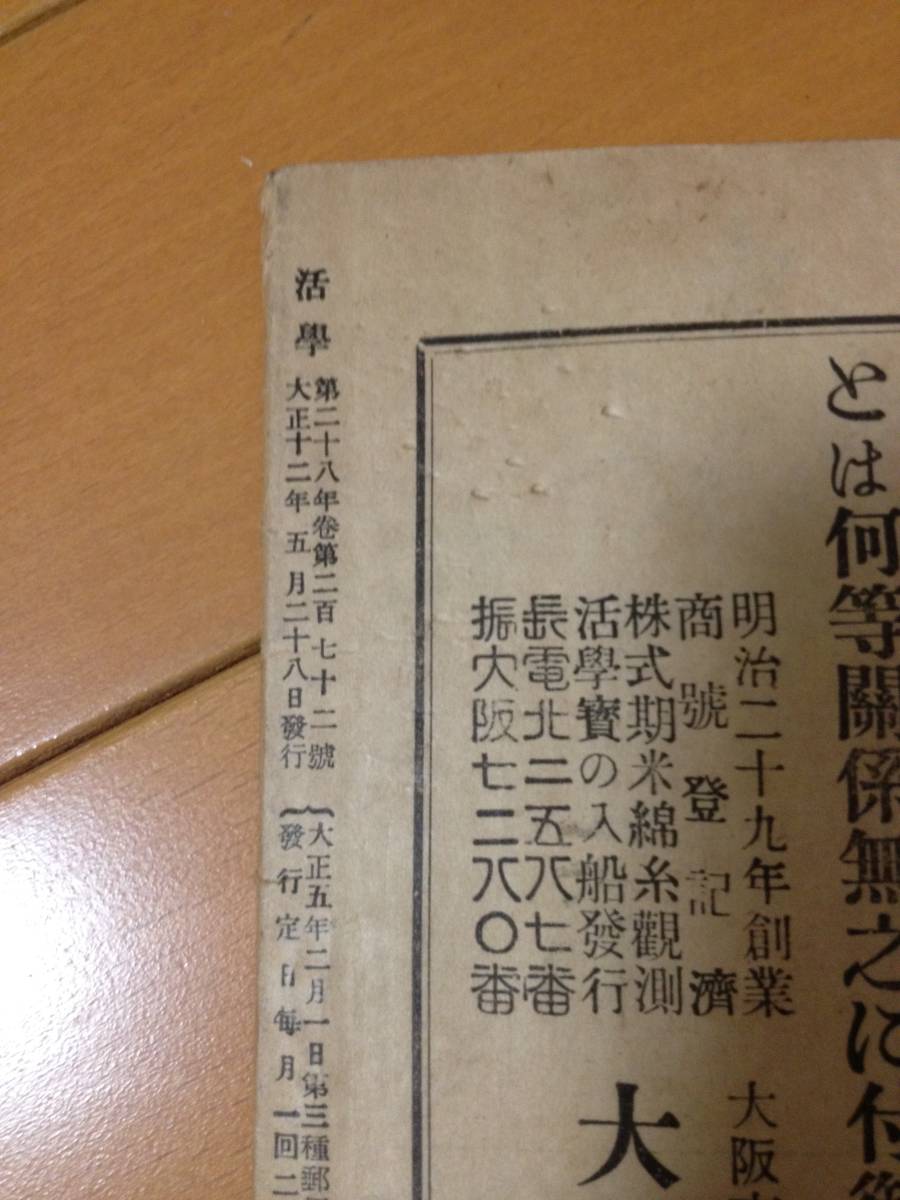 とは何等關係無之に付
大阪
明治二十九年創業
商號登記濟
大
株式期米綿糸觀測
活學寶の入船發行
長電北二五八七番
振大阪七二八〇番
活學
第二十八年卷第二百七十二號
大正十二年五月二十八日發行
(大正五年二月一日第三種郵
發行定日每月一回二